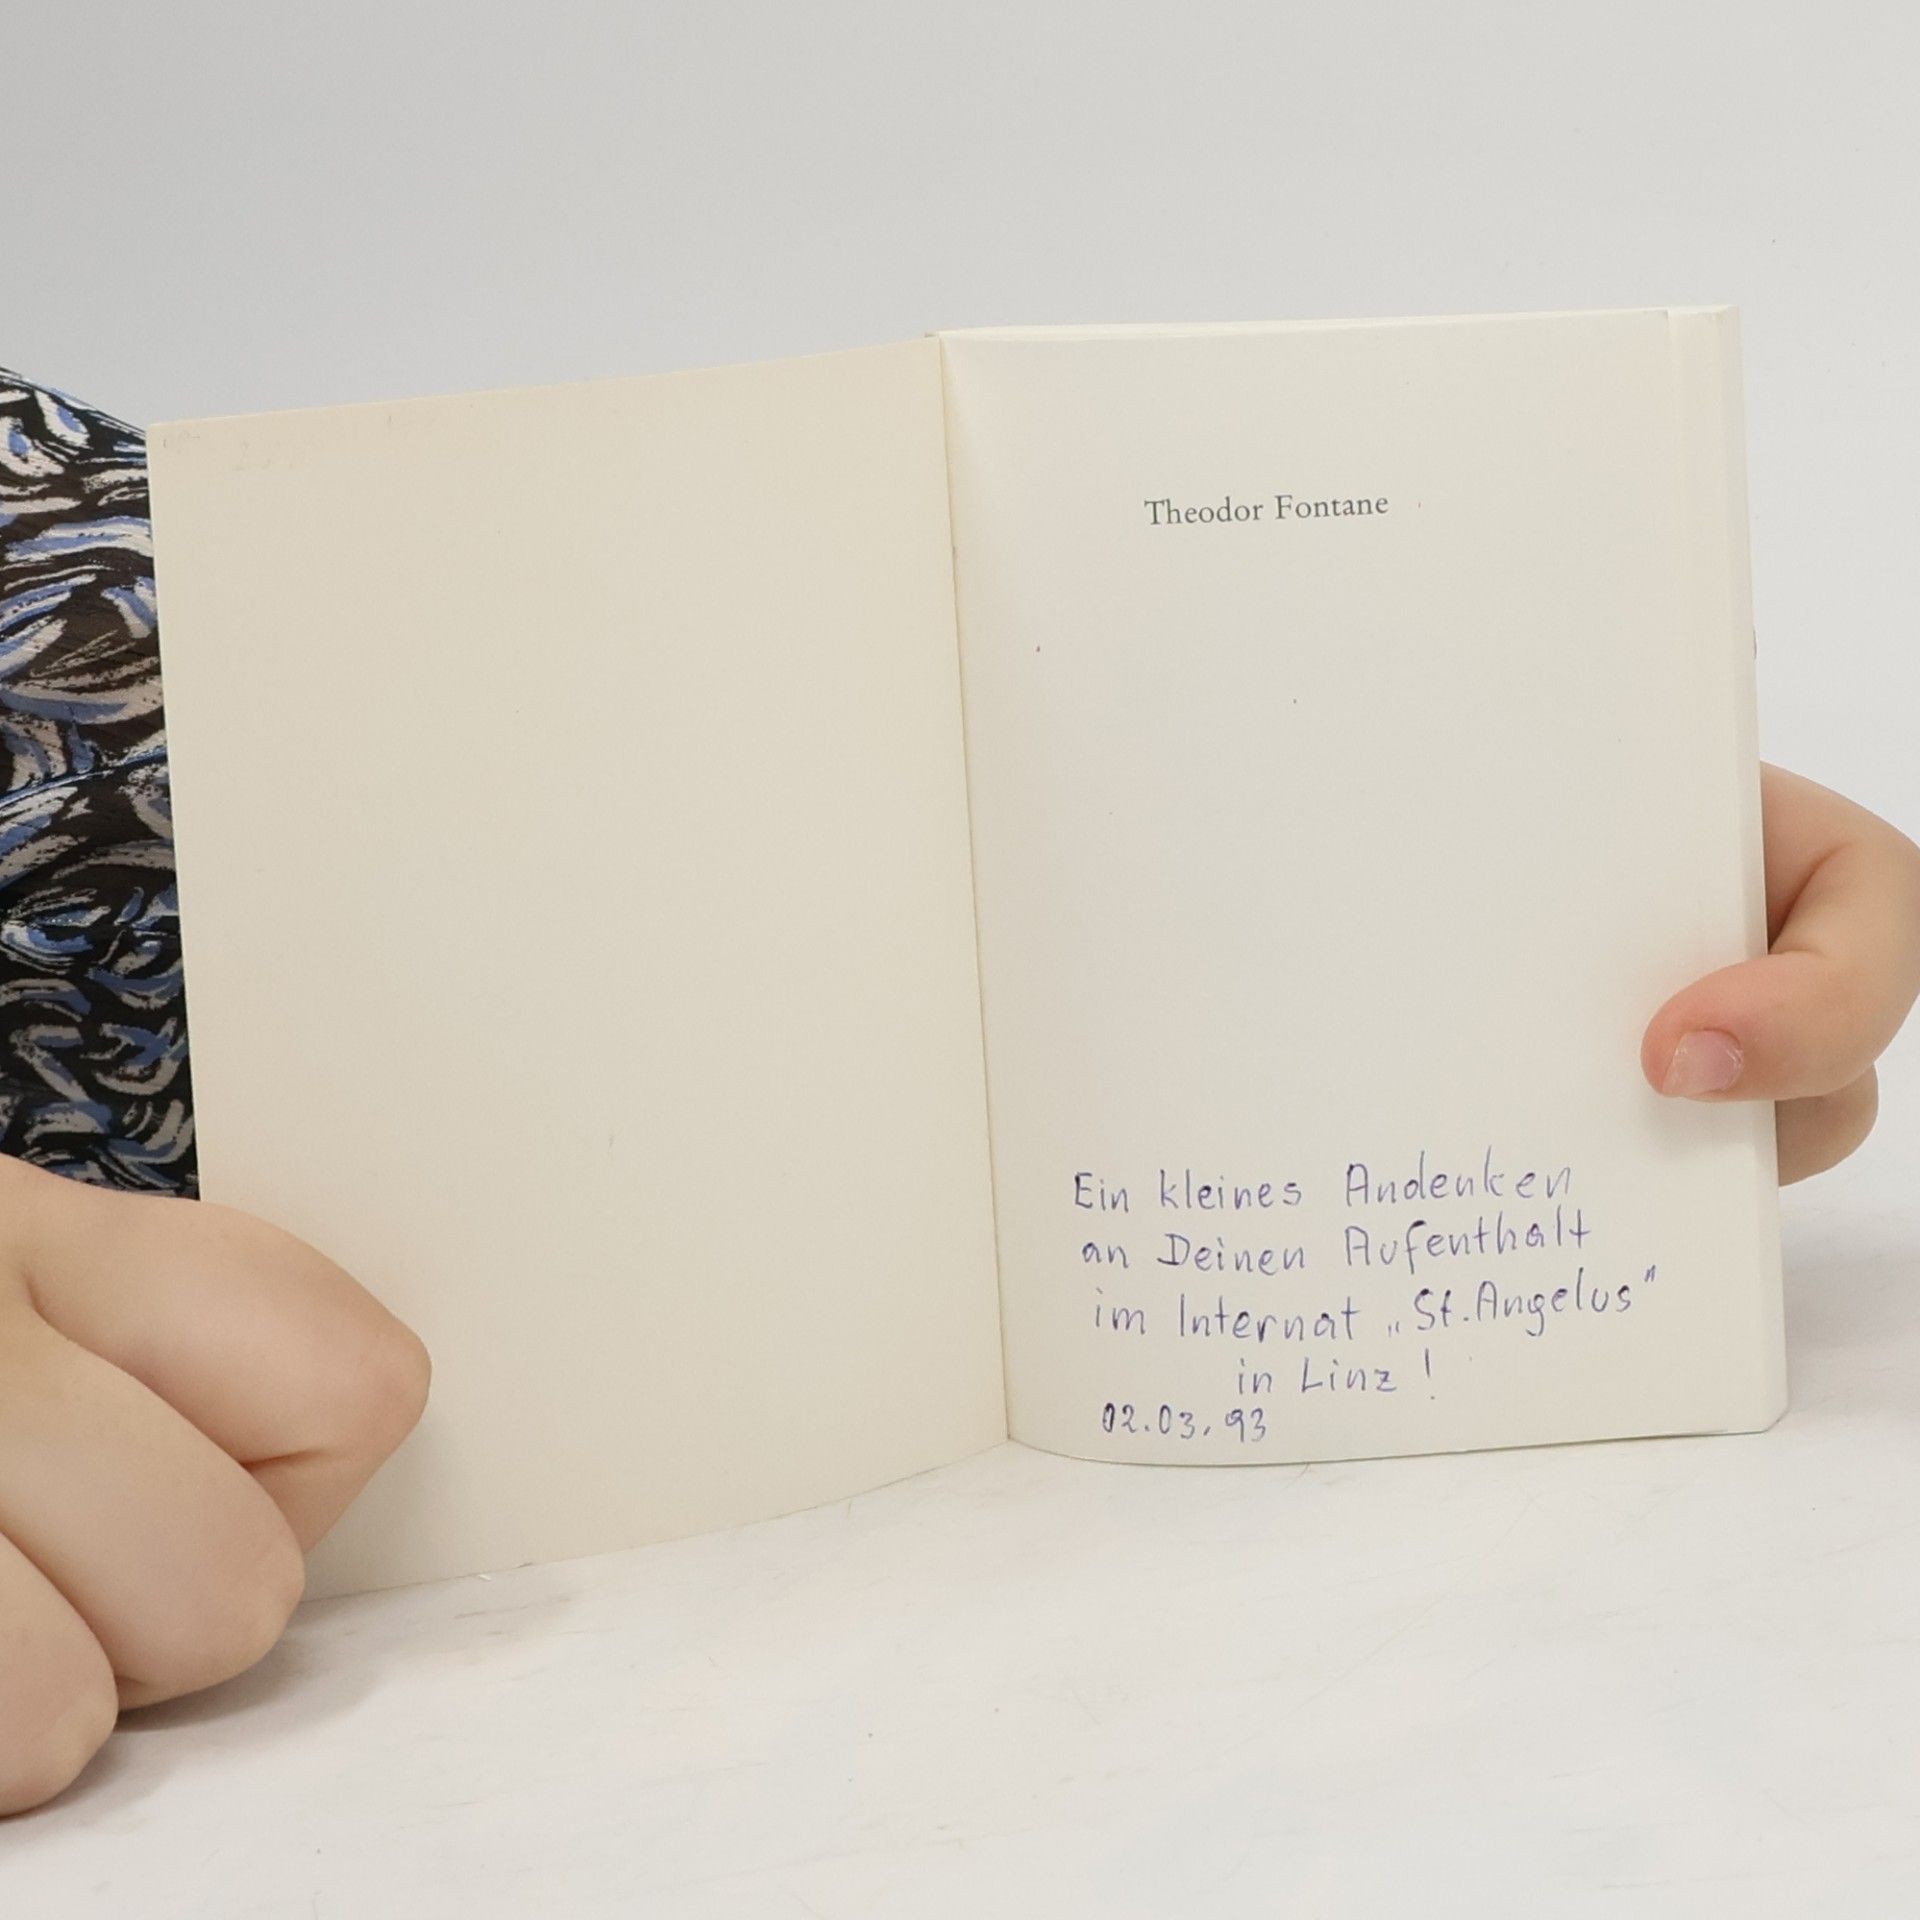 Theodor Fontane
Ein kleines Andenken
an Deinen Aufenthalt
im Internat „St. Angelus"
in Linz !
02.03.93